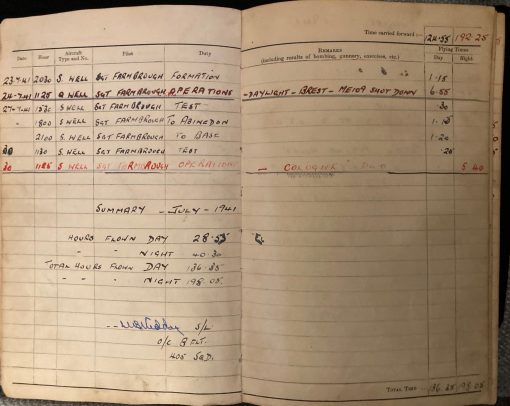 Time carried forward :— 124·55 192·25
Date Hour Aircraft Type and No. Pilot Duty Remarks (including results of bombing, gunnery, exercises, etc.) Flying Times Day Night
23·7·41 2030 S. WELL SGT FARMBROUGH FORMATION 1·15
24·7·41 1125 Q WELL SGT FARMBROUGH OPERATIONS -DAYLIGHT - BREST - ME109 SHOT DOWN 6·55
27·7·41 1530 S. WELL SGT FARMBROUGH TEST ·30
" 1800 S WELL SGT FARMBROUGH TO ABINGDON 1·15
2100 S WELL SGT FARMBROUGH TO BASE 1·20
30 1130 S. WELL SGT FARMBROUGH TEST ·25
30 S WELL SGT FARMBROUGH OPERATIONS - COLOGNE 5 40
SUMMARY - JULY - 1941
HOURS FLOWN DAY 28·55
" " NIGHT 40·30
TOTAL HOURS FLOWN DAY 136·35
" " " NIGHT 198·05
S/L
O/C B FLT.
405 SQD.
TOTAL TIME 136·35 198·05